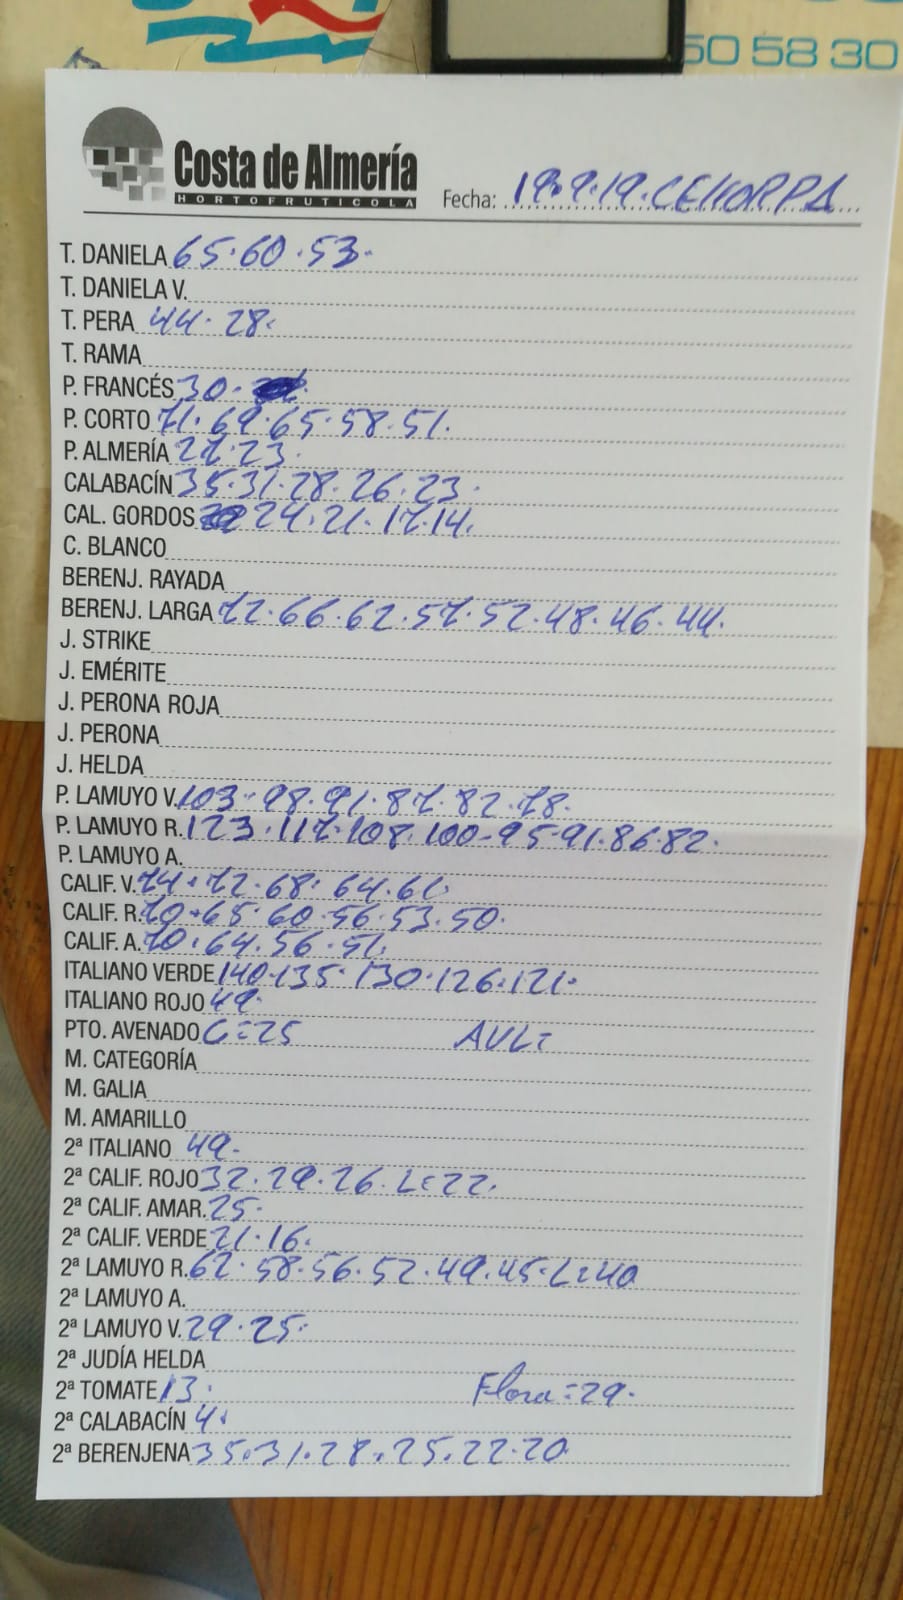 50 58 30
Costa de Almería
HORTOFRUTICOLA
Fecha: 19.9.19. CEHORPA
T. DANIELA 65.60.53.
T. DANIELA V.
T. PERA 44.28.
T. RAMA
P. FRANCÉS 30.
P. CORTO 71.69.65.58.51.
P. ALMERÍA 27.23.
CALABACÍN 35.31.28.26.23.
CAL. GORDOS 24.21.17.14.
C. BLANCO
BERENJ. RAYADA
BERENJ. LARGA 72.66.62.57.52.48.46.44.
J. STRIKE
J. EMÉRITE
J. PERONA ROJA
J. PERONA
J. HELDA
P. LAMUYO V. 103.98.91.87.82.78.
P. LAMUYO R. 123.117.108.100-95.91.86.82.
P. LAMUYO A.
CALIF. V. 74.72.68.64.61.
CALIF. R. 70.65.60.56.53.50.
CALIF. A. 70.64.56.51.
ITALIANO VERDE 140.135.130.126.121.
ITALIANO ROJO 49.
PTO. AVENADO C=25 AVL=
M. CATEGORÍA
M. GALIA
M. AMARILLO
2ª ITALIANO 49.
2ª CALIF. ROJO 32.29.26.L=22.
2ª CALIF. AMAR. 25.
2ª CALIF. VERDE 21.16.
2ª LAMUYO R. 62.58.56.52.49.45.L=40
2ª LAMUYO A.
2ª LAMUYO V. 29.25.
2ª JUDÍA HELDA
2ª TOMATE 13. Flora=29.
2ª CALABACÍN 4.
2ª BERENJENA 35.31.28.25.22.20